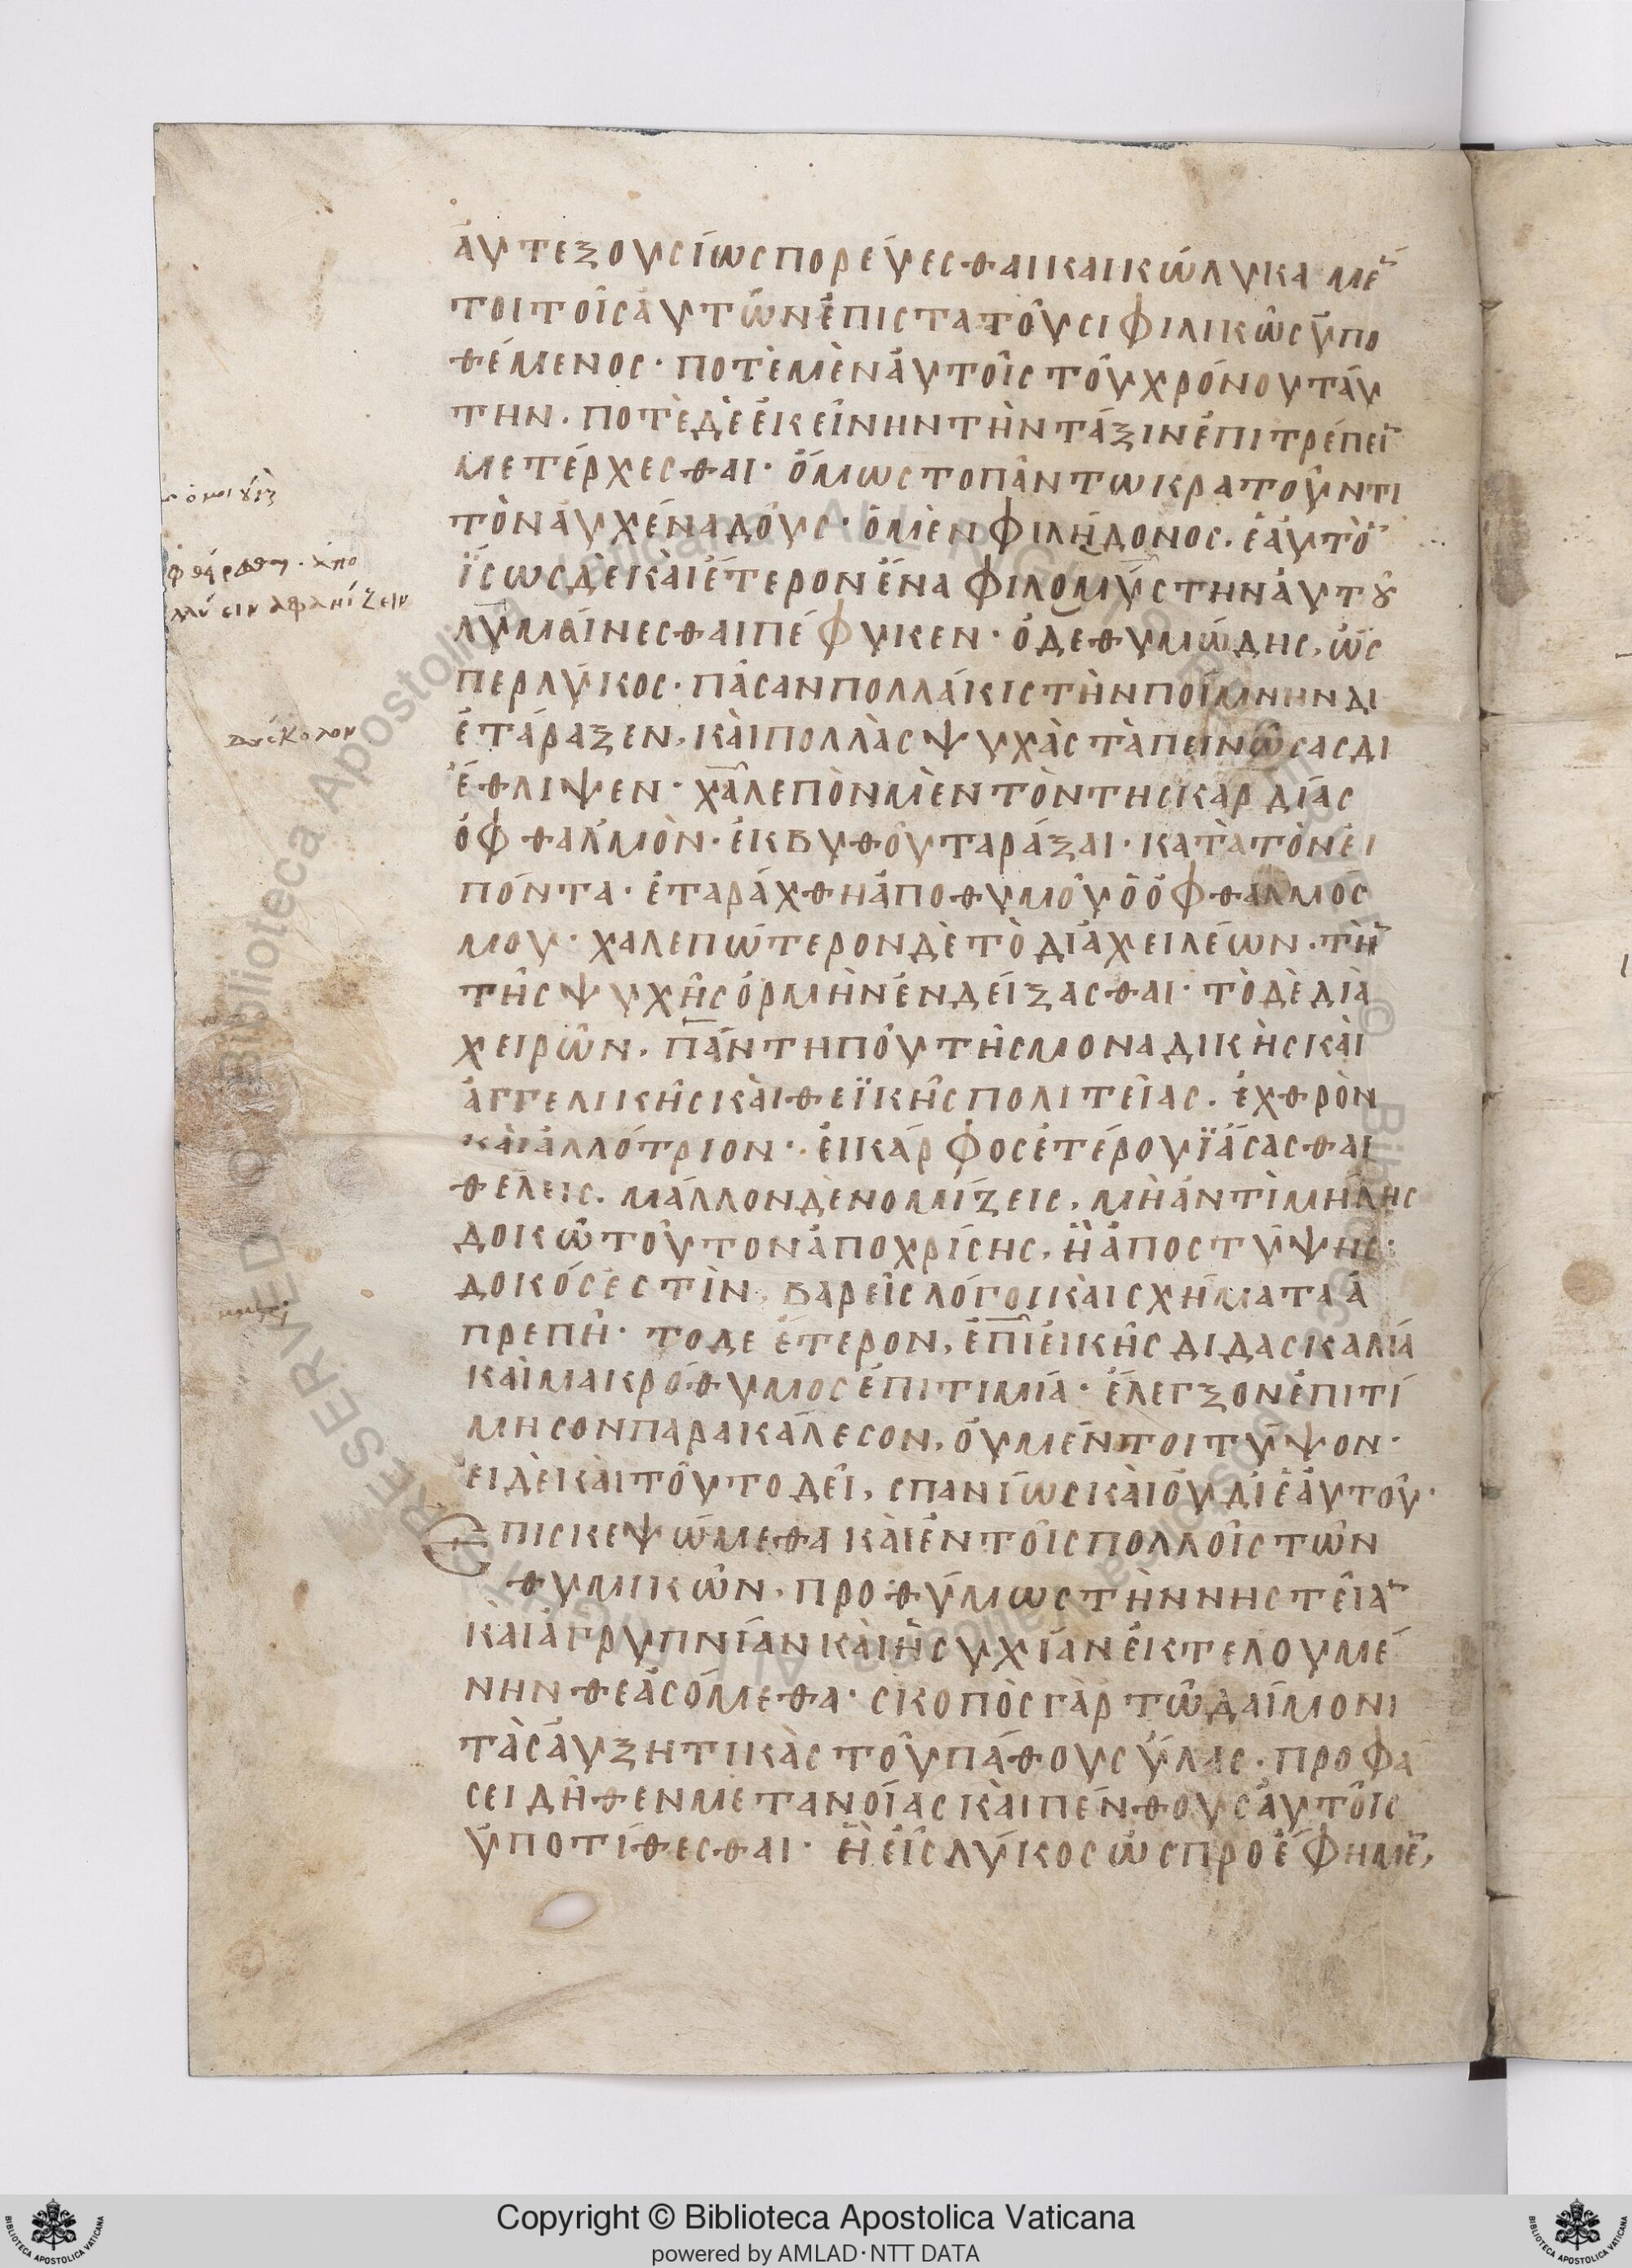 ἀυτεξουσίως πορέυεσθαι καὶ κώλυκα μὲ̄
τοι τοῖς ἀυτῶν ἐπιστατοῦσι φιλικῶς ὑπο
θέμενος· ποτὲ μὲν ἀυτοῖς τοῦ χρόνου τάυ
την. ποτὲ δὲ ἐκείνην τὴν τάξιν ἐπιτρέπεῑ
μετέρχεσθαι· ὅμως τὸ παντωκρατοῦντι
τὸν ἀυχένα δοὺς· ὁ μὲν φιλήδονος. ἑαυτὸ̄
ἴσως δὲ καὶ ἕτερον ἕνα φιλομύστην ἀυτȣ
λυμαίνεσθαι πέφυκεν· ὁ δὲ θυμώδης, ὥσ
περ λύκος· πᾶσαν πολλάκις τὴν ποίμνην δι
ετάραξεν, καὶ πολλὰς ψυχὰς ταπεινώσας δι
έθλιψεν· χαλεπὸν μὲν τὸν τῆς καρδίας
ὀφθαλμὸν· ἐκ βυθοῦ ταράξαι· κατὰ τὸν ει
πόντα· ἐταράχθη ἀπο θυμοῦ ὁ ὀφθαλμός
μου· χαλεπώτερον δὲ τὸ διὰ χειλέων. τὴ̄
τῆς ψυχῆς ὁρμὴν ἐνδείξασθαι· τὸ δὲ διὰ
χειρῶν, πάντη που τῆς μοναδικῆς καὶ
ἀγγελικῆς καὶ θεϊκῆς πολιτείας. ἐχθρὸν
καὶ ἀλλότριον· εἰ κάρφος ἑτέρου ϊάσασθαι
θέλεις. μᾶλλον δὲ νομίζεις, μὴ ἀντὶ μήλης
δοκῶ τοῦτον ἀποχρίσης, ἢ ἀποστύψης·
δοκός ἐστὶν, βαρεῖς λόγοι καὶ σχήματα ἀ
πρεπῆ· τὸ δὲ ἕτερον, ἐπιεικὴς διδασκαλία
καὶ μακρόθυμος ἐπιτιμία· ἔλεγξον ἐπιτί
μησον παρακάλεσον, οὐ μέντοι τύψον·
εἰ δὲ καὶ τοῦτο δεῖ, σπανίως καὶ ὀυ δι ἑαυτοῦ·
Επισκεψώμεθα καὶ ἐν τοῖς πολλοῖς τῶν
θυμικῶν, προθύμως τὴν νηστείᾱ
καὶ ἀγρυπνίαν καὶ ἡσυχίαν ἐκτελουμέ
νην θεασόμεθα· σκοπὸς γὰρ τῶ δαίμονι
τὰς ἀυξητικὰς τοῦ πάθους ὕλας. προφά
σει δῆθεν μετανοίας καὶ πένθους ἀυτοῖς
ὑποτίθεσθαι· ἢ εἰς λύκος ὡς προέφημε̄,
φθείρεσθαι. ἀπο
λλύειν ἀφανίζειν
δύσκολον
Copyright © Biblioteca Apostolica Vaticana
powered by AMLAD·NTT DATA